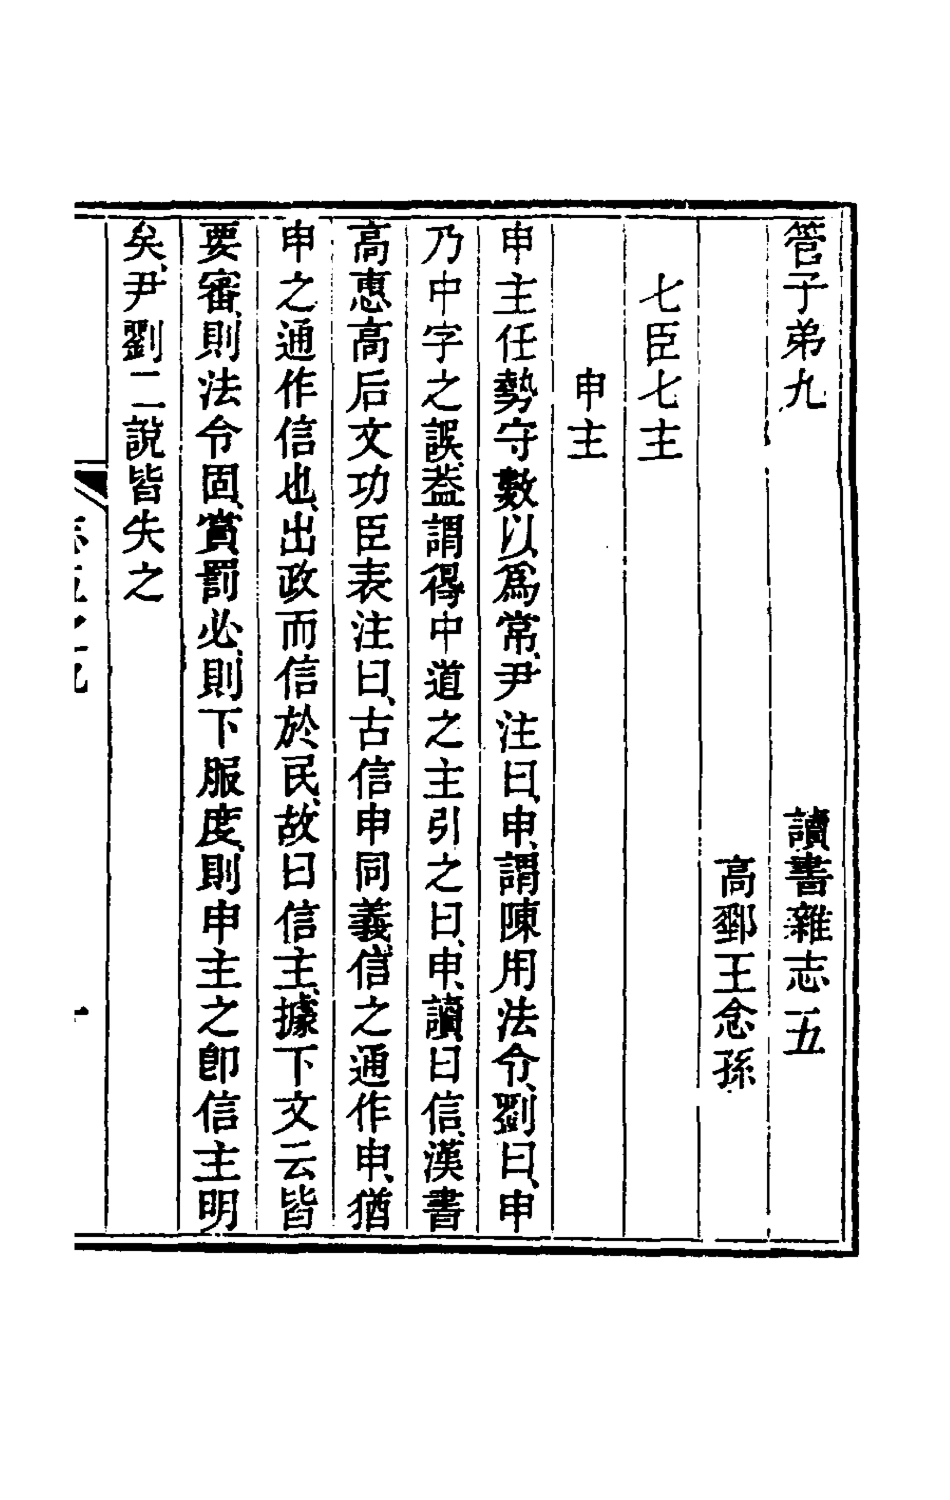 管子弟九　讀書雜志五
高郵王念孫
七臣七主
申主
申主任勢守數以爲常、尹注曰、申、謂陳用法令、劉曰、申
乃中字之誤、葢謂得中道之主引之曰、申、讀曰信、漢書
高惠高后文功臣表注曰、古信申同義、信之通作申、猶
申之通作信也、出政而信於民、故曰信主、據下文云皆
要審、則法令固、賞罰必、則下服度、則申主之卽信主明
矣、尹劉二說皆失之